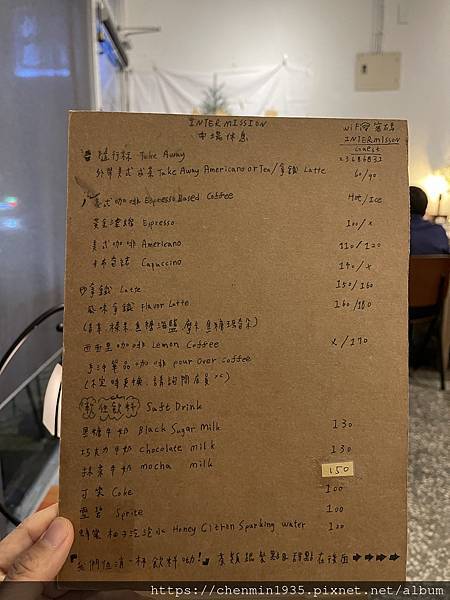 INTERMISSION
中場休息
WiFi@密碼
INTERMISSON
Guest
23686832
隨行杯 Take Away
外帶美式或茶 Take Away Americano or Tea/拿鐵 Latte 60/90
義式咖啡 Espresso Based Coffee Hot/Ice
義式濃縮 Espresso 100/x
美式咖啡 Americano 110/120
卡布奇諾 Capuccino 140/x
拿鐵 Latte 150/160
風味拿鐵 Flavor Latte 160/180
西西里咖啡 Lemon Coffee x/170
手沖單品咖啡 pour over coffee
(不定時更換,請詢問店員^^)
軟性飲料 Soft Drink
黑糖牛奶 Black Sugar Milk 130
巧克力牛奶 chocolate milk 130
抹茶牛奶 mocha milk 150
可樂 Coke 100
雪碧 Sprite 100
蜂蜜柚子氣泡水 Honey Citron Sparking water 120
我們低消一杯飲料呦! 茶類跟鬆點&甜點在後面
https://chenmin1935.pixnet.net/album